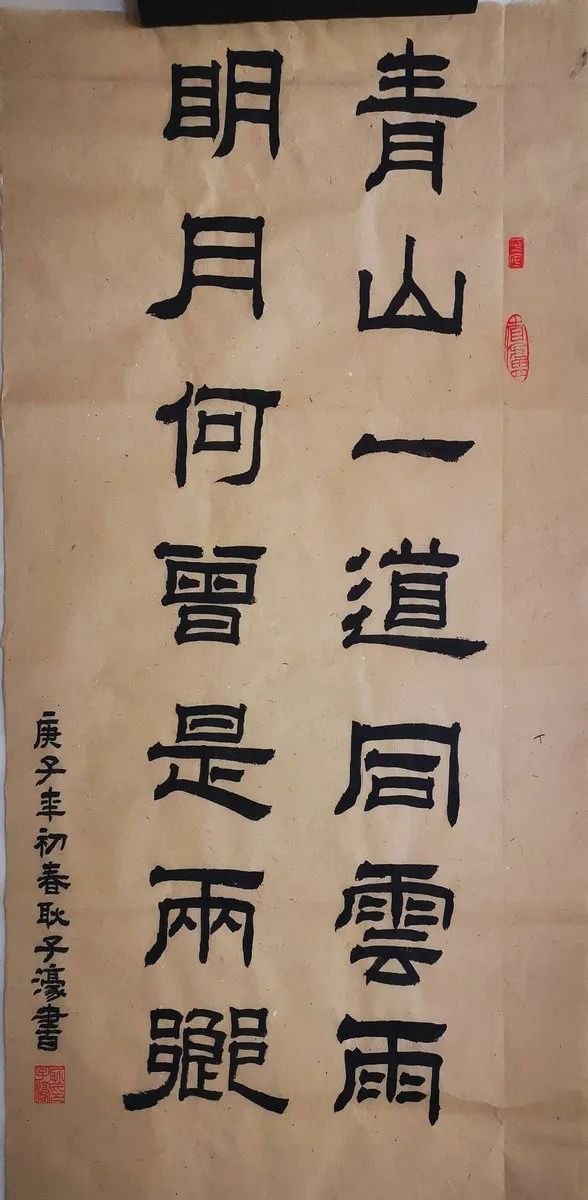 青山一道同雲雨
明月何曾是兩鄉
庚子年初春耿子濠書